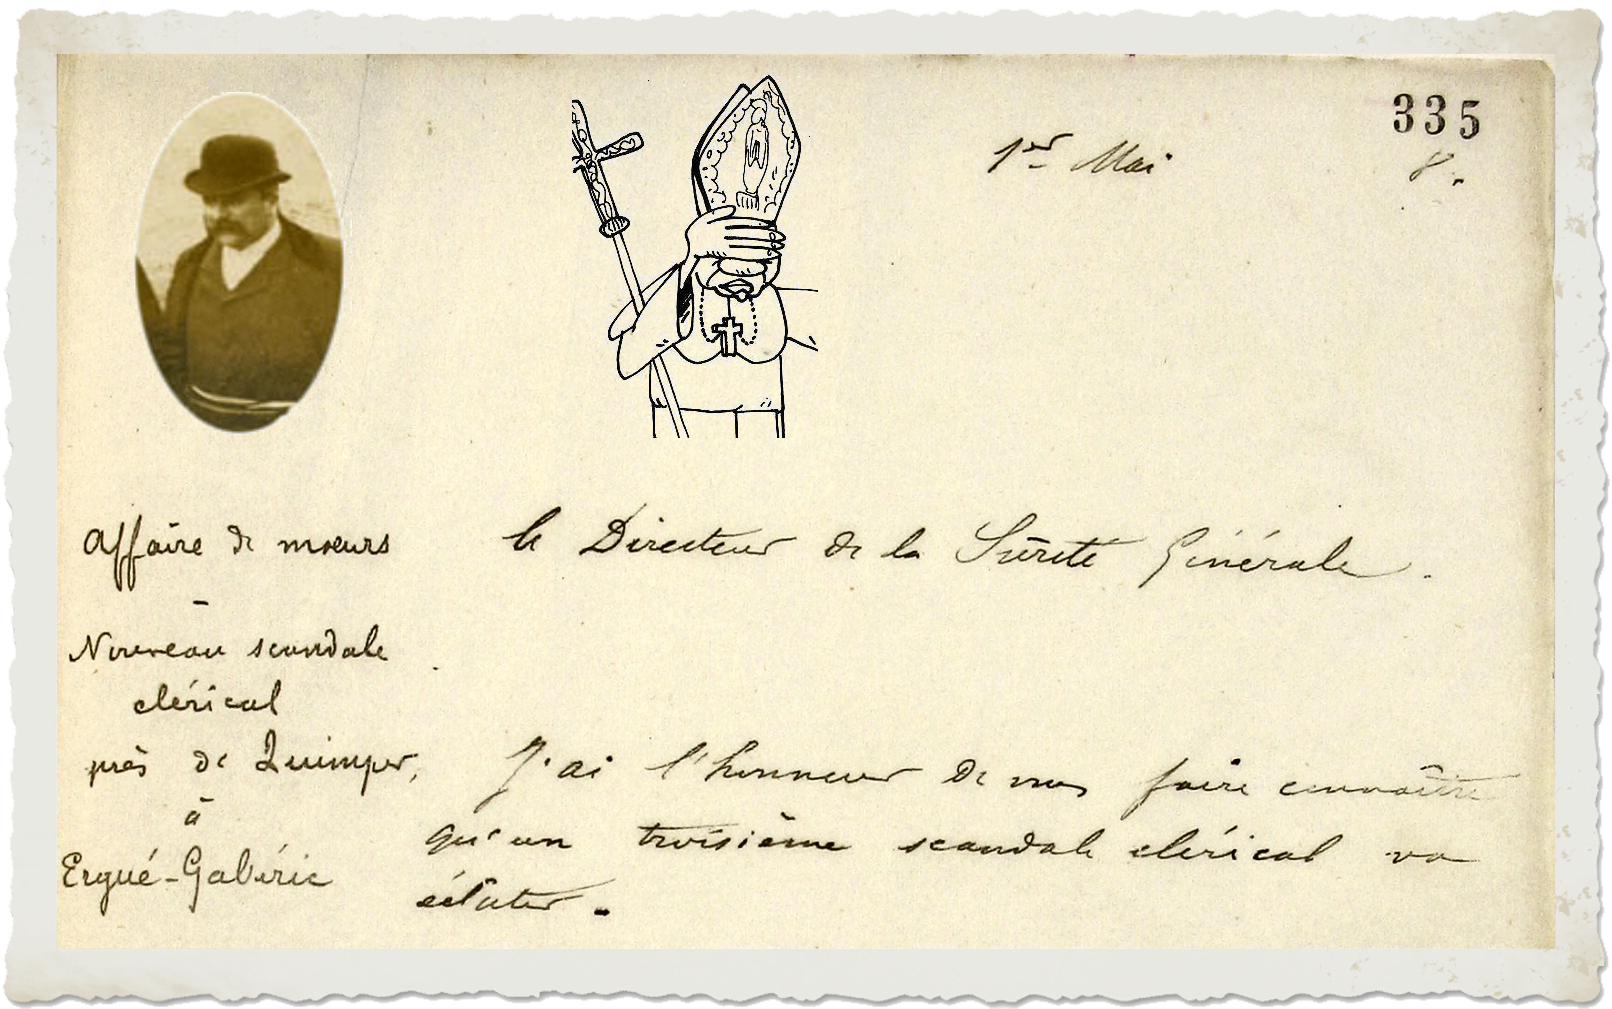 335
1er Mai 8.
Affaire de mœurs
-
Nouveau scandale
clérical
près de Quimper,
à
Ergué-Gabéric
le Directeur de la Sûreté Générale.
J'ai l'honneur de vous faire connaître
qu'un troisième scandale clérical va
éclater.